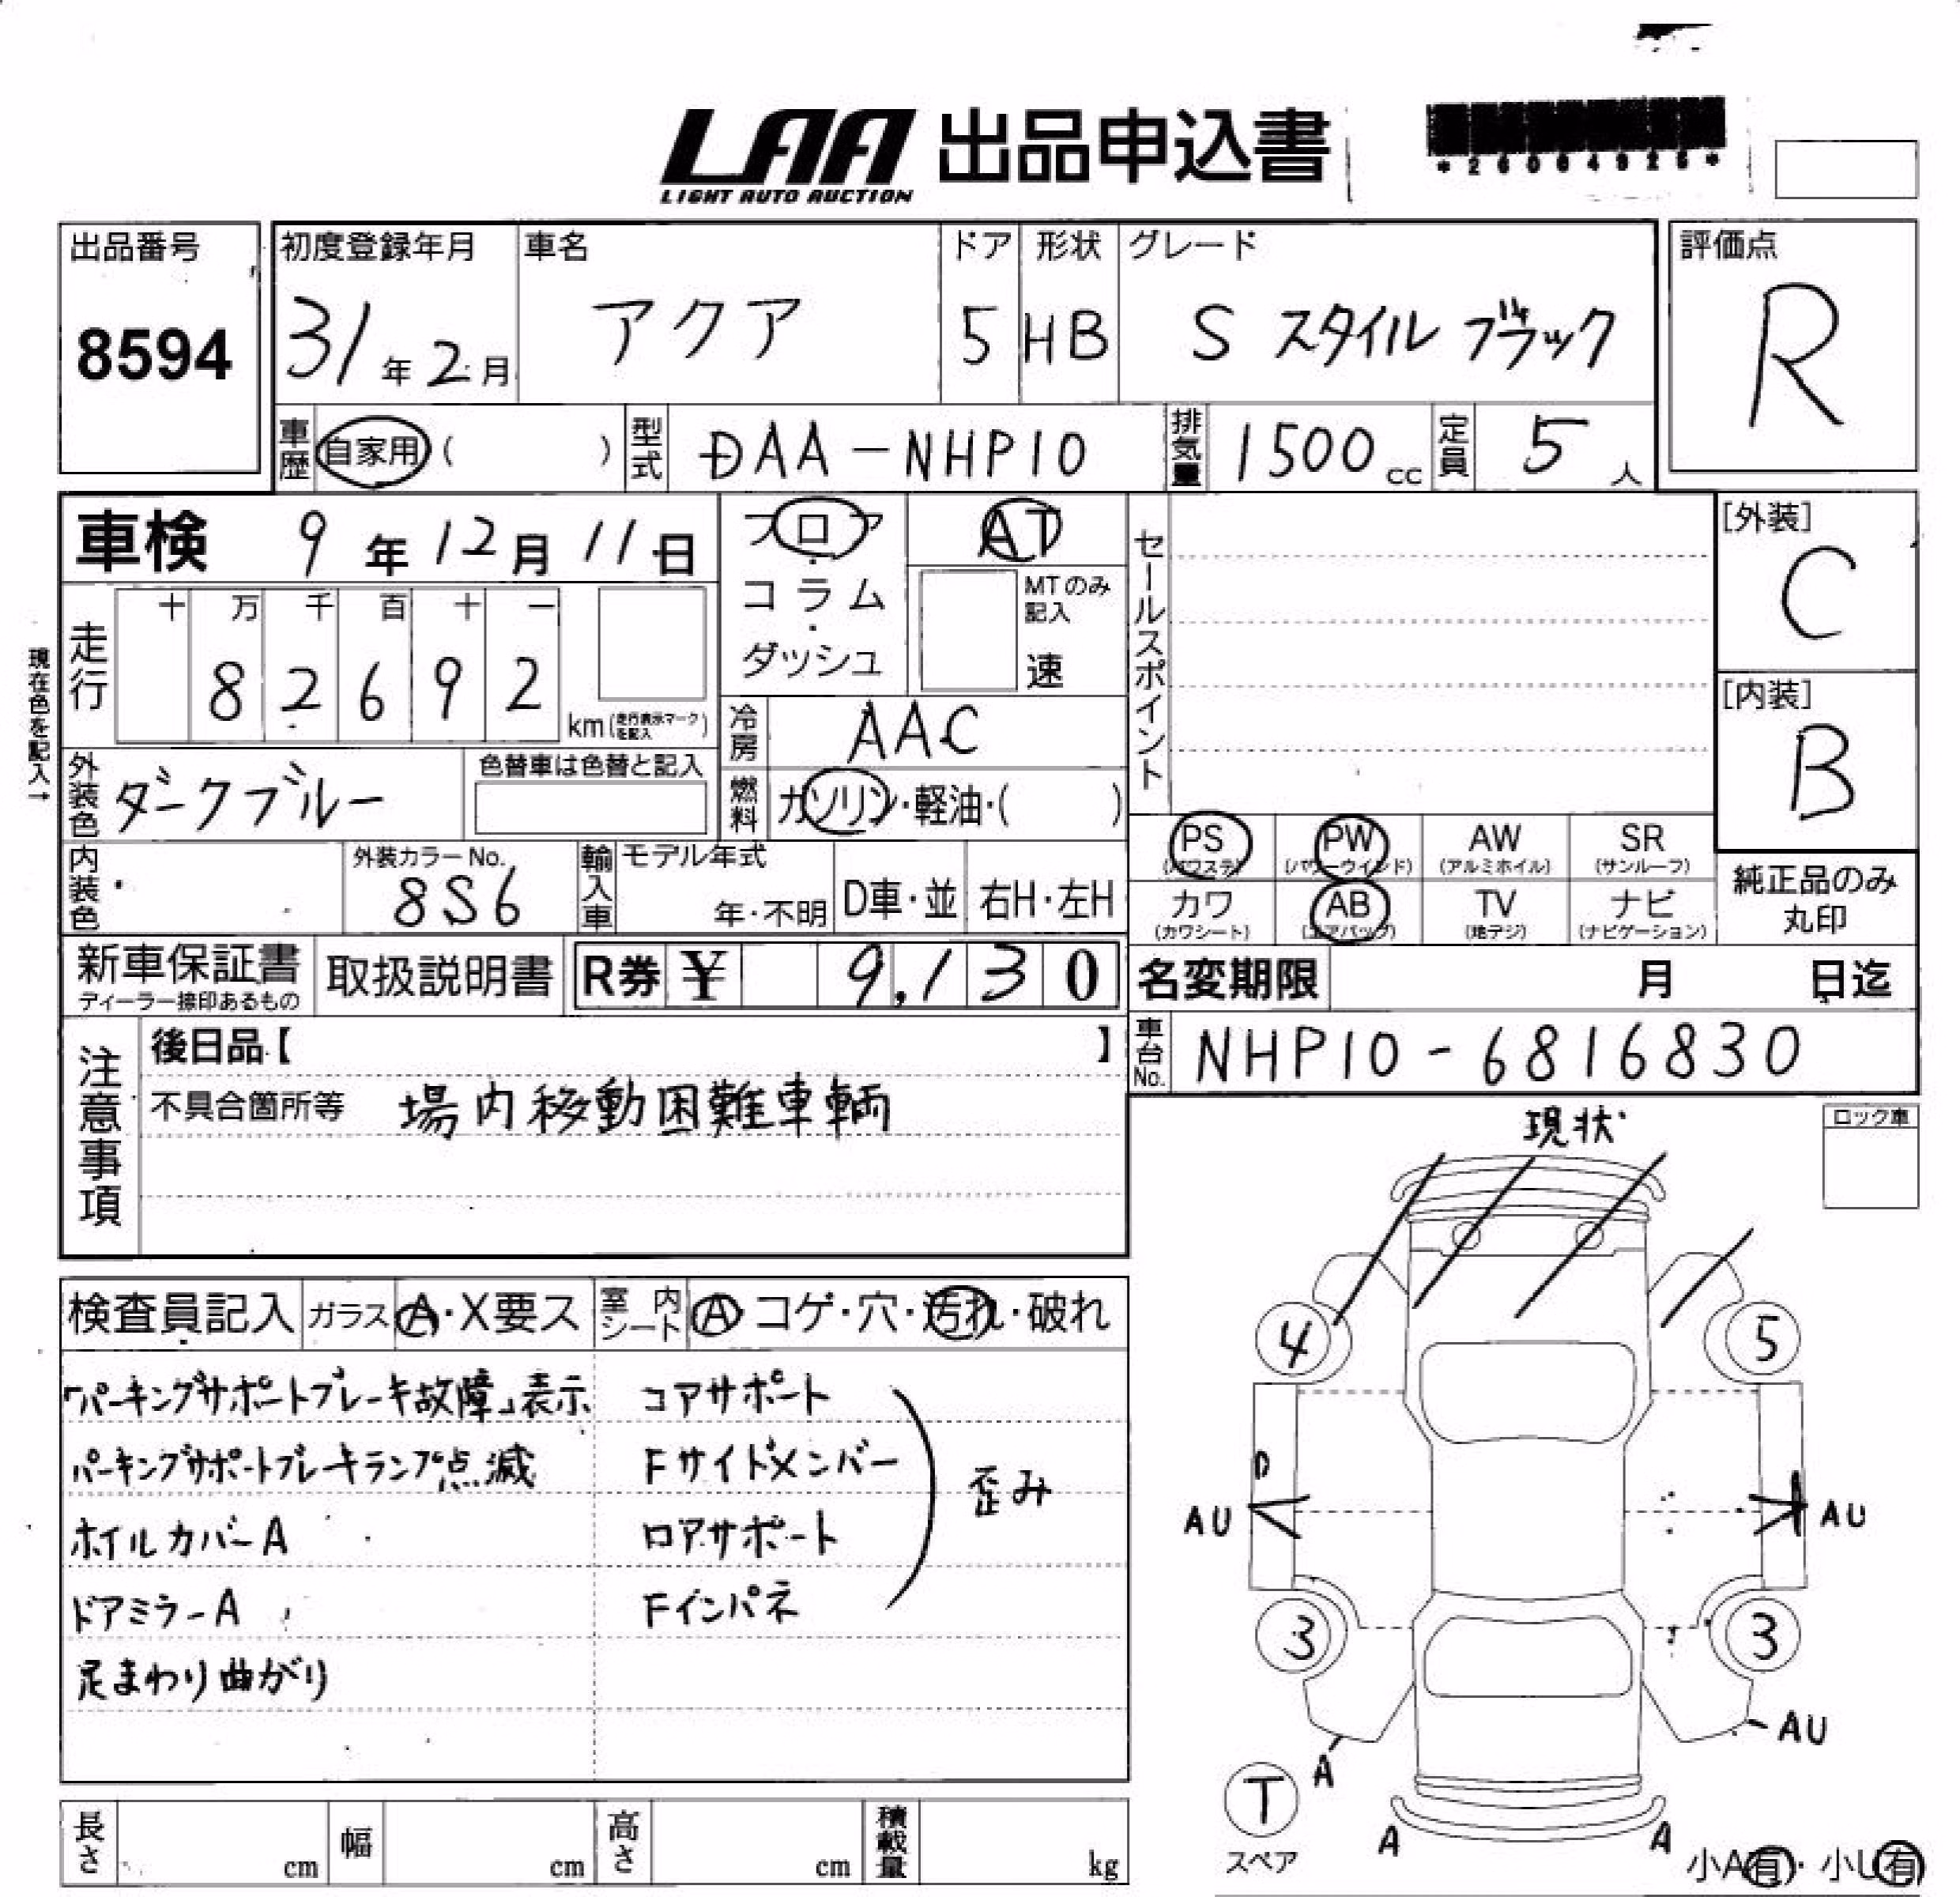 LAA 出品申込書
LIGHT AUTO AUCTION
出品番号
8594
初度登録年月
31年2月
車名
アクア
ドア
5
形状
HB
グレード
S スタイル ブラック
評価点
R
車歴
自家用( )
型式
DAA-NHP10
排気量
1500cc
定員
5人
車検 9年12月11日
フロア・コラム・ダッシュ
AT
MTのみ記入
速
セールスポイント
[外装]
C
[内装]
B
現在色を記入→
走行
十 万 千 百 十 一
8 2 6 9 2
km(走行表示マークを記入)
冷房
AAC
燃料
ガソリン・軽油・( )
外装色
ダークブルー
色替車は色替と記入
内装色
外装カラーNo.
8S6
輸入車
モデル年式
年・不明
D車・並
右H・左H
PS
(パワステ)
PW
(パワーウインド)
AW
(アルミホイル)
SR
(サンルーフ)
カワ
(カワシート)
AB
(エアバッグ)
TV
(地デジ)
ナビ
(ナビゲーション)
純正品のみ
丸印
新車保証書
ディーラー捺印あるもの
取扱説明書
R券 ¥ 9,130
名変期限 月 日迄
車台No.
NHP10-6816830
注意事項
後日品【 】
不具合箇所等 場内移動困難車輌
現状
ロック車
検査員記入
ガラス
A・X要ス
室内シート
A・コゲ・穴・汚れ・破れ
「パーキングサポートブレーキ故障」表示
パーキングサポートブレーキランプ点滅
ホイルカバーA
ドアミラーA
足まわり曲がり
コアサポート
Fサイドメンバー
ロアサポート
Fインパネ
歪み
4
5
D
AU
AU
3
3
AU
A
T
スペア
A
A
小A有・小U有
長さ cm
幅 cm
高さ cm
積載量 kg